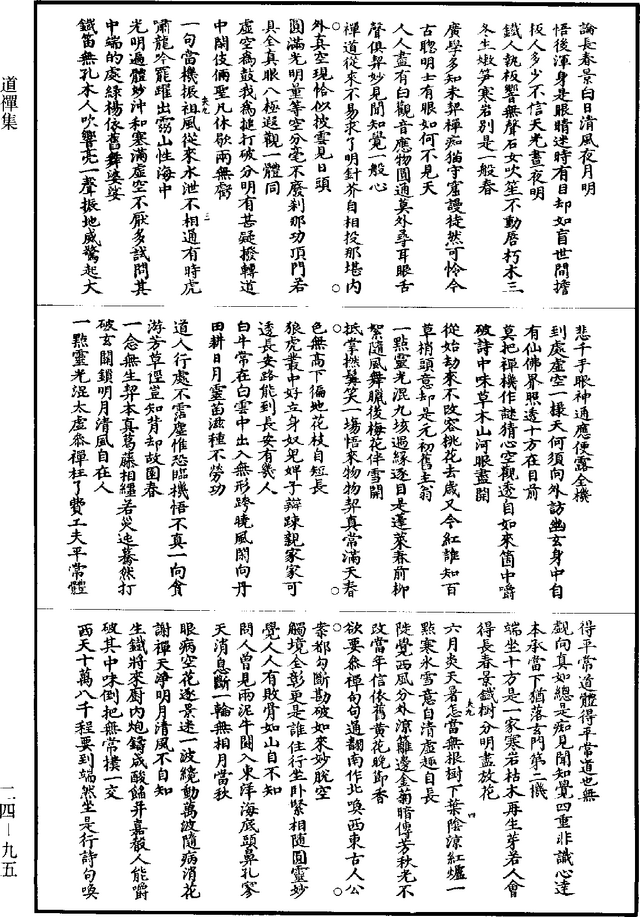 道禪集
論長春景白日清風夜月明
悟後渾身是眼睛迷時有目却如盲世間擔
板人多少不信天光晝夜明
鐵人執板響無聲石女吹笙不動唇朽木三
冬生嫩笋寒岩別是一般春
廣學多知未契禪痴猫守窟謾徒然可怜今
古聰明士有眼如何不見天
人人盡有白觀音應物圓通莫外尋耳眼舌
聲俱契妙見聞知覺一般心
禪道從來不易求了明針芥自相投那堪内
外真空現恰似披雲見日頭
圓滿光明量等空分毫不廢刹那功頂門若
具全真眼八極遐觀一體同
虛空爲鼓我爲搥打破分明有甚疑撥轉道
中閑伎倆聖凡休歇兩無虧
一句當機振祖風從來水泄不相通有時虎
嘯龍吟罷躍出靈山性海中
光明遍體妙沖和塞滿虛空不厭多試問其
中端的處綠楊依舊舞婆娑
鐵笛無孔木人吹響亮一聲振地威驚起大
悲千手眼神通應便露全機
到處虛空一樣天何須向外訪幽玄身中自
有仙佛界照透十方在目前
莫把禪機作謎猜心空觀透自如來箇中嚼
破詩中味草木山河眼盡開
從始劫來不改容桃花去歲又今紅誰知百
草梢頭意却是元初舊主翁
一點靈光混九垓遇緣逐目是蓬萊春前柳
絮隨風舞臘後梅花伴雪開
抵掌撫 笑一場悟來物物契真常滿天春
色無高下徧地花枝自短長
狼虎叢中好立身奴兒婢子辯踈親家家可
透長安路能到長安有幾人
白牛常在白雲中出入無形跨曉風閑向丹
田耕日月靈苗滋種不勞功
道人行處不當塵惟恐臨機悟不真一向貪
游芳草徑豈知背却故園春
一念無生契本真葛藤相纏若災迍驀然打
破玄關鎖明月清風自在人
一點靈光混太虛參禪枉了費工夫平常體
得平常道體得平常道也無
覷向真如總是痴見聞知覺四重非識心達
本承當下猶落玄門第二機
端坐十方是一家寒岩枯木再生芽若人會
得長春景鐵樹分明盡放花
六月炎天暑怎當無根樹下葉陰涼紅爐一
點寒氷雪意自清虛趣自長
陡覺西風分外涼籬邊金菊暗傳芳秋光不
改當年信依舊黃花晚節香
欲要參禪句句通翻南作北喚西東古人公
案都勾斷勘破如來妙脫空
觸境全彰更是誰住行坐卧緊相隨圓靈妙
覺人人有敗骨如山自不知
問人曾見兩泥牛鬪入東洋海底頭鼻孔寥
天消息斷一輪無相月當秋
眼病空花逐景迷一波纔動萬波隨病消花
謝禪天淨明月清風不自知
生鐵將來厨内炮鑄成酸餡并嘉殽人能嚼
破其中味倒把無常撲一交
西天十萬八千程要到端然坐是行詩句喚
一四－九五